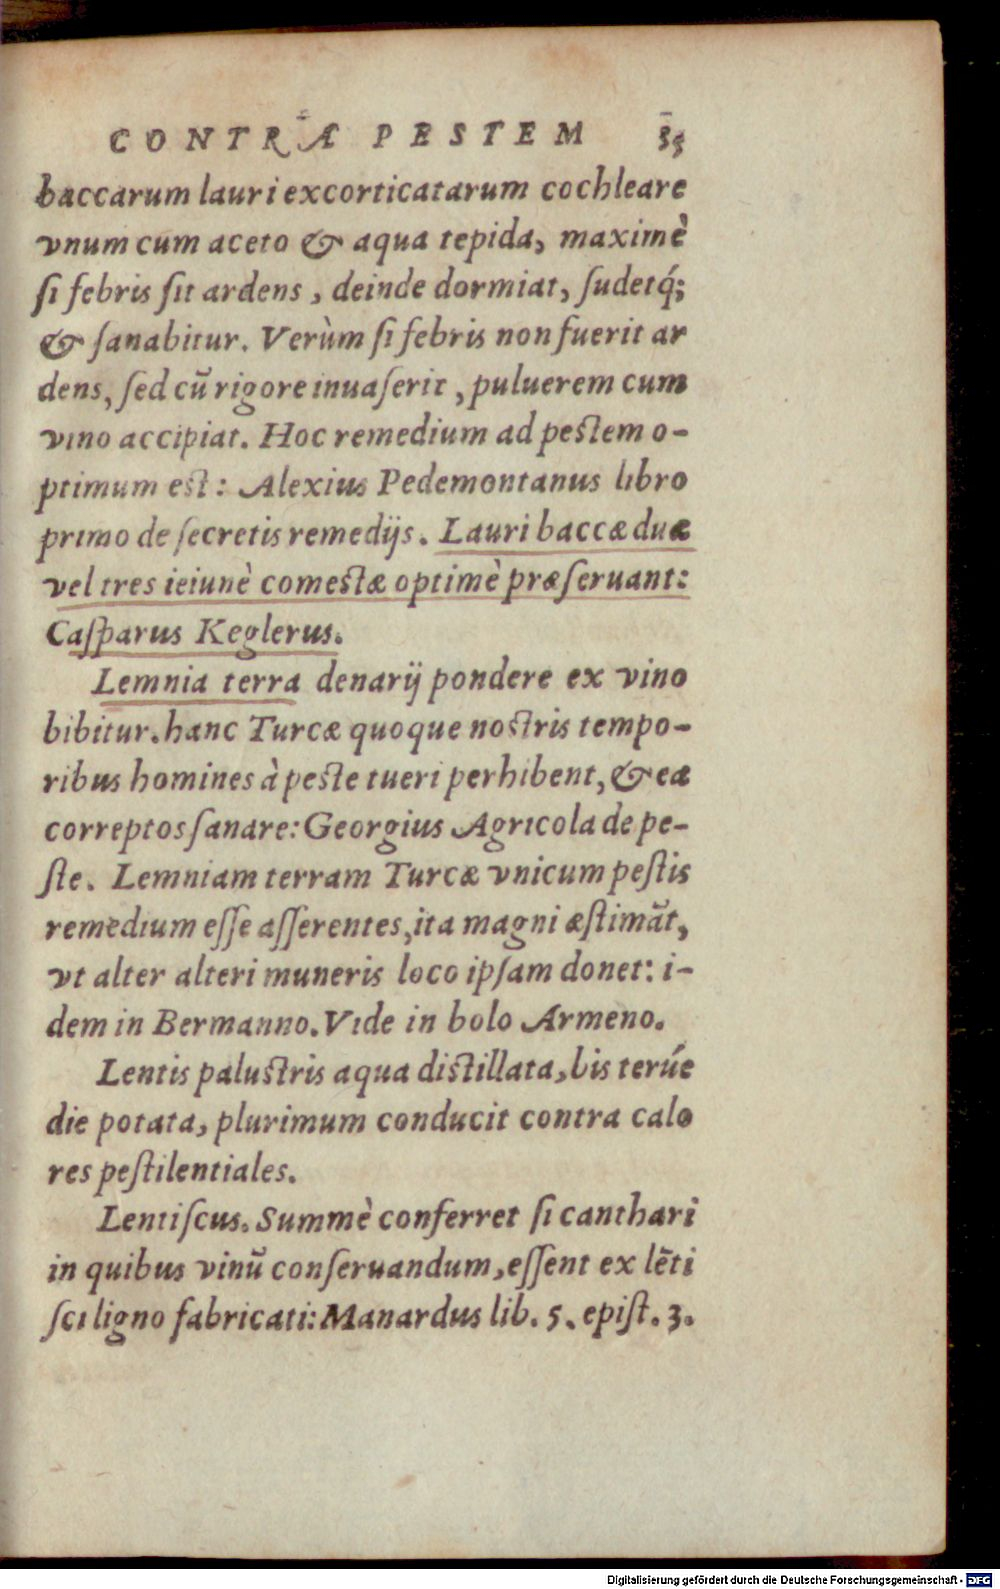 CONTRA PESTEM 35
baccarum lauri excorticatarum cochleare
vnum cum aceto & aqua tepida, maximè
ſi febris ſit ardens, deinde dormiat, ſudetq́;
& ſanabitur. Verùm ſi febris non fuerit ar
dens, ſed cũ rigore inuaſerit, puluerem cum
vino accipiat. Hoc remedium ad peſtem o-
ptimum eſt: Alexius Pedemontanus libro
primo de ſecretis remedijs. Lauri baccæ duæ
vel tres ieiunè comeſtæ optimè præſeruant:
Caſparus Keglerus.
Lemnia terra denarij pondere ex vino
bibitur. hanc Turcæ quoque noſtris tempo-
ribus homines à peſte tueri perhibent, & ea
correptos ſanare: Georgius Agricola de pe-
ſte. Lemniam terram Turcæ vnicum peſtis
remedium eſſe aſſerentes, ita magni æſtimãt,
vt alter alteri muneris loco ipſam donet: i-
dem in Bermanno. Vide in bolo Armeno.
Lentis paluſtris aqua diſtillata, bis terúe
die potata, plurimum conducit contra calo
res peſtilentiales.
Lentiſcus. Summè conferret ſi canthari
in quibus vinũ conſeruandum, eſſent ex lẽti
ſci ligno fabricati: Manardus lib. 5. epiſt. 3.
Digitalisierung gefördert durch die Deutsche Forschungsgemeinschaft - DFG